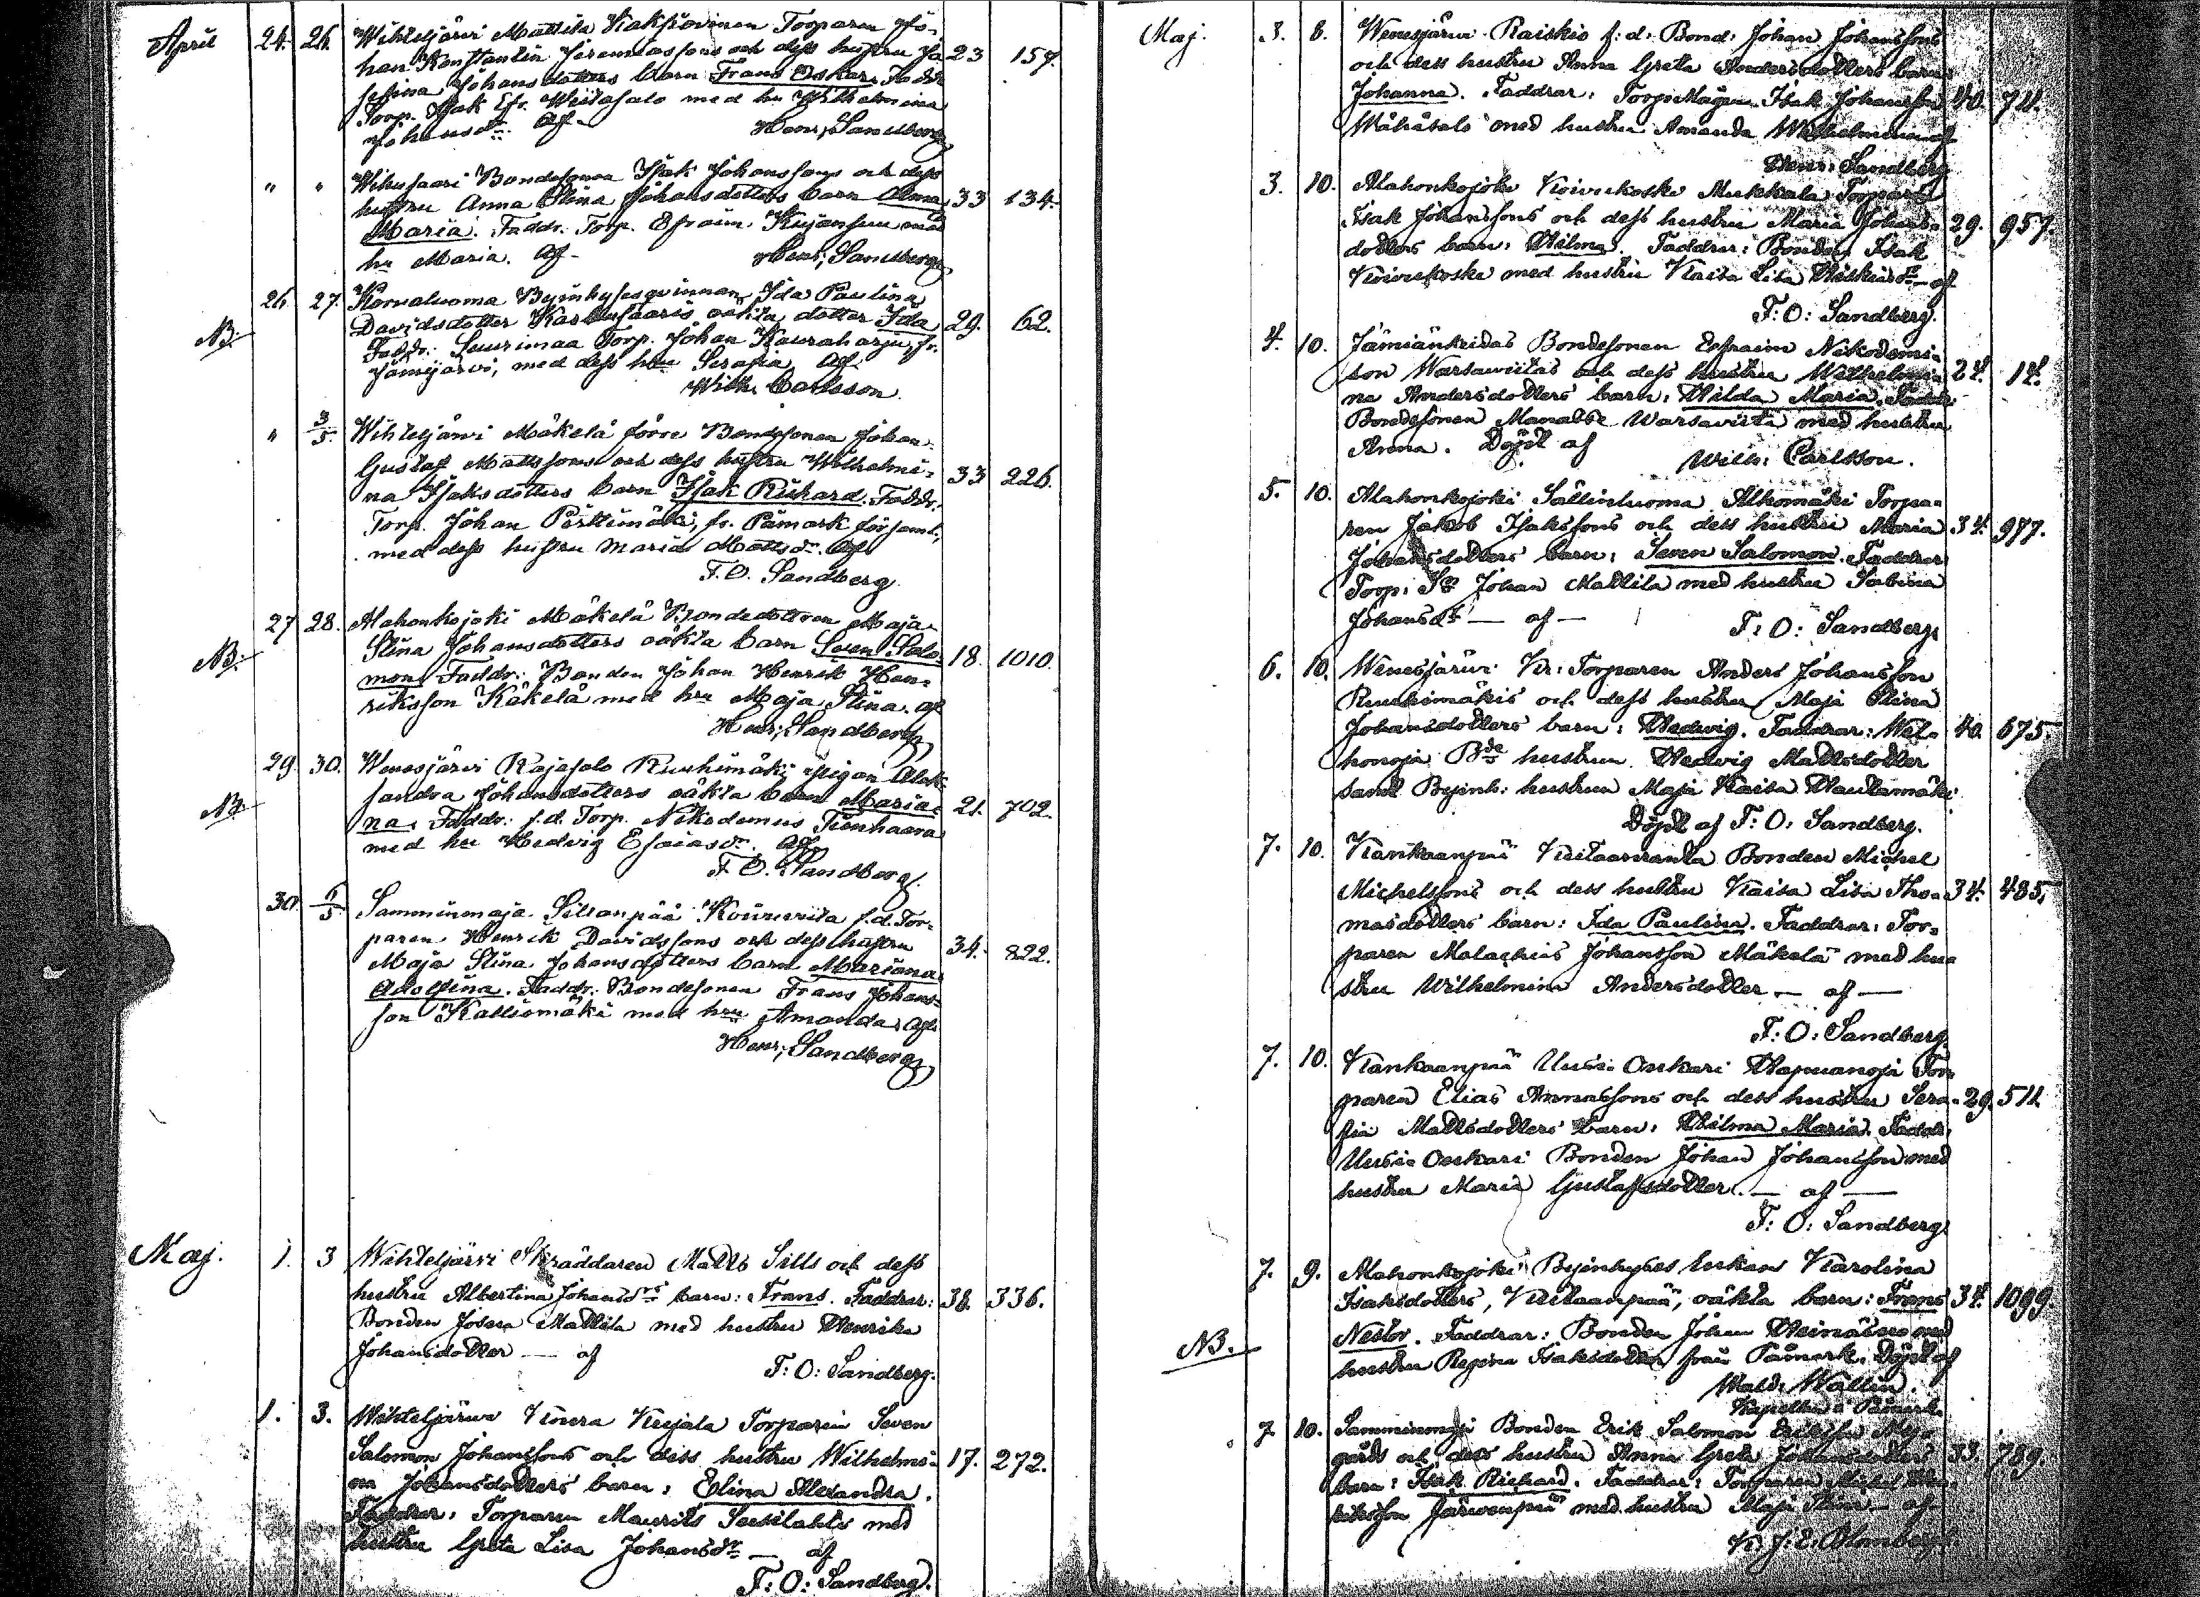 April 24. 26. Wihteljärvi Mattila Kaksiovinen Torparen Jo-
han Konstantin Jeremiassons och dess hustru Jo- 23 157.
sefina Johansdotters barn Frans Oskar. Faddr.
Torp. Isak Efr. Weilasalo med hu Wilhelmina
Johansdr. Af Henr. Sandberg
" " Bondesonen Isak Johanssons och dess
hustru Anna Stina Johansdotters barn Alma 33 134.
Maria. Faddr. Torp. Efraim Kujansuu med
hu Maria. Af Henr. Sandberg
26 27. Korvaluoma Byinhysesqvinnan Ida Paulina
Davidsdotter oäkta dotter Ida 29. 62.
NB. Faddr. Suurimaa Torp. Johan Kauraharju, fr.
Jämijärvi, med dess hru Serafia. Af
Wilh. Carlsson
" 3/5 Wihteljärvi Mäkelä förre Bondesonen Johan
Gustaf Mattssons och dess hustru Wilhelmi- 33 226.
na Isaksdotters barn Isak Rickard. Faddr.
Torp. Johan Perttimäki, fr. Påmark församl.,
med dess hustru Maria Mattsdr. Af
F. O. Sandberg.
27 28. Alahonkojoki Mäkelä Bondedottren Maja
Stina Johansdotters oäkta barn Seven Salo- 18. 1010.
NB. mon. Faddr. Bonden Johan Henrik Hen-
riksson Käkelä med hru Maja Stina. Af
Henr. Sandberg
29. 30. Wenesjärvi Rajasalo Ruuhimäki pigan Alek-
sandra Johansdotters oäkta barn Maria- 21. 702.
NB. na. Faddr. f.d. Torp. Nikodemus Tienhaara
med hu Hedvig Esaiasdr. Af
F. O. Sandberg.
30. 6/5 Samminmaja Sillanpää f.d. Tor-
paren Henrik Davidssons och dess hustru 34. 822.
Maja Stina Johansdotters barn Mariana
Adolfina. Faddr. Bondesonen Frans Johans-
son Kalliomäki med hru Amanda. Af
Henr. Sandberg
Maj. 1. 3 Wihteljärvi Skräddaren Matts Sills och dess
hustru Albertina Johansdrs barn: Frans. Faddrar: 38. 336.
Bonden Josua Mattila med hustru Henrika
Johansdotter — af
F: O: Sandberg.
1. 3. Wihteljärvi Kiviera Kujala Torparen Seven
Salomon Johanssons och dess hustru Wilhelmi- 17. 272.
na Johansdotters barn: Elina Alexandra.
Faddrar: Torparen Maurits med
hustru Greta Lisa Johansdr — af
F: O: Sandberg.
Maj. 3. 8. Wenesjärvi Raiskio f: d: Bond: Johan Johanssons
och dess hustru Anna Greta Andersdotters barn:
Johanna. Faddrar: Isak Johansson 40. 711.
Wähäsalo med hustru Amanda Wilhelmina af
Henr. Sandberg
3. 10. Alahonkojoki Koivukoski Mukkala Torparen
Isak Johanssons och dess hustru Maria Johans- 29. 957.
dotters barn: Hilma. Faddrar: Bonden Isak
Koivukoski med hustru Kaisa Lisa — af
F: O: Sandberg.
4. 10. Jämiänkeidas Bondesonen Efraim Nikodemi-
son Warsawiitas och dess hustru Wilhelmi- 24. 14.
na Andersdotters barn: Hilda Maria. Faddr:
Bondesonen Manasse Warsavirta med hustru
Anna. Döpt af Wilh: Carlsson.
5. 10. Alahonkojoki Sällinluoma Alhomäki Torpa-
ren Jakob Isakssons och dess hustru Maria 34. 977.
Johansdotters barn: Seven Salomon. Faddrar
Torp: Johan Mattila med hustru Sabina
Johansdr — af —
F: O: Sandberg
6. 10. Wenesjärvi Kr: Torparen Anders Johansson
Ruuhimäkis och dess hustru Maja Stina
Johansdotters barn: Hedvig. Faddrar: Wel- 40. 675.
honoja Bde hustrun Hedvig Mattsdotter
samt Byinh: hustrun Maja Kaisa Hautamäki.
Döpt af F: O: Sandberg.
7. 10. Kankaanpää Viitaanranta Bonden Michel
Michelssons och dess hustru Kaisa Lisa Tho- 34. 485.
masdotters barn: Ida Paulina. Faddrar: Tor-
paren Malachias Johansson Mäkelä med hu-
stru Wilhelmina Andersdotter — af —
F: O: Sandberg.
7. 10. Kankaanpää Uusi-Onkari Hapuanoja Tor-
paren Elias Annassons och dess hustru Sera- 29. 511.
fia Mattsdotters barn: Hilma Maria. Faddr:
Uusi-Onkari Bonden Johan Johansson med
hustru Maria Gustafsdotter. — af —
F: O: Sandberg
7. 9. Alahonkojoki Byinhyses enkan Karolina
Isaksdotters, Viitaanpää, oäkta barn: Frans 34. 1099.
NB. Nestor. Faddrar: Bonden Johan Heinäsuo med
hustru Regina Isaksdotter från Påmark. Döpt af
Wald: Wallin.
Kapellan i Påmark.
7 10. Samminmaja Bonden Erik Salomon Eriksson Ny-
gårds och dess hustru Anna Greta Johansdotters 33. 789.
barn: Isak Richard. Faddrar: Torparen Michel Hen-
riksson Järvenpää med hustru Maja Stina — af
K: J: E: Blomberg.